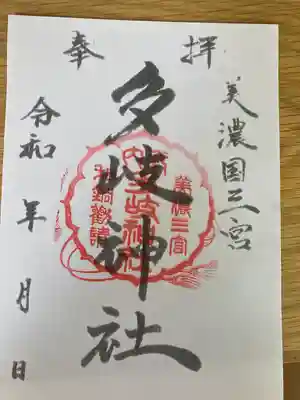 奉拝
美濃国三宮
多岐神社
美濃三宮
令和 年 月 日